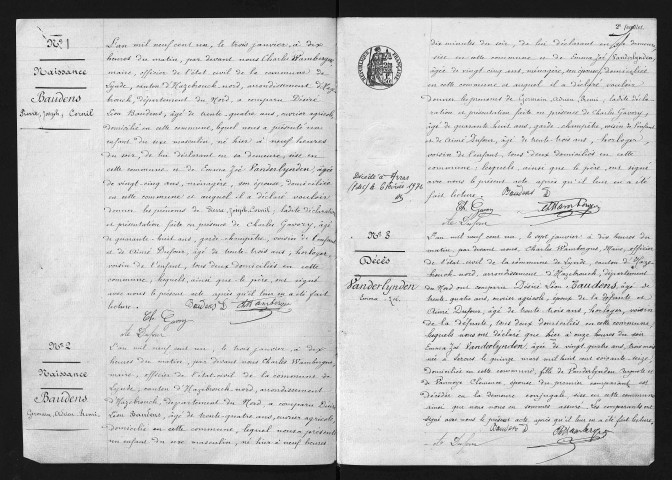 N° 1
Naissance
Baudens
Pierre, Joseph, Cornil
L'an mil neuf cent un, le trois janvier, à dix
heures du matin, par devant nous Charles Wambergue
maire, officier de l'état civil de la commune de
Lynde, canton d'Hazebrouck-nord, arrondissement d'Haze-
brouck, département du Nord a comparu Désiré
Léon Baudens, âgé de trente-quatre ans, ouvrier agricole,
domicilié en cette commune, lequel nous a présenté un
enfant du sexe masculin, né hier à neuf heures
du soir, de lui déclarant en sa demeure, sise en
cette commune et de Emma Zoé Vanderlynden, âgée
de vingt-cinq ans, ménagère, son épouse, domiciliée
en cette commune et auquel il a déclaré vouloir
donner les prénoms de Pierre, Joseph, Cornil; la dite déclaration
et présentation faite en présence de Charles Gavory, âgé
de quarante-huit ans, garde-champêtre, voisin de l'enfant
et de Aimé Dufour, âgé de trente-trois ans, horloger,
voisin de l'enfant, tous deux domiciliés en cette
commune, lesquels, ainsi que le père, ont signé
avec nous le présent acte après qu'il leur en a été fait
lecture.
Baudens D
N° 2
Naissance
Baudens
Germain, Adrien, Rémi
L'an mil neuf cent un, le trois janvier, à dix
heures du matin, par devant nous Charles Wambergue
maire, officier de l'état civil de la commune de
Lynde, canton d'Hazebrouck-nord, arrondissement
d'Hazebrouck, département du Nord a comparu Désiré
Léon Baudens, âgé de trente-quatre ans, ouvrier agricole,
domicilié en cette commune, lequel nous a présenté
un enfant du sexe masculin, né hier à neuf heures
2e feuillet
RÉPUBLIQUE FRANÇAISE
dix minutes du soir, de lui déclarant en sa demeure
sise en cette commune et de Emma Zoé Vanderlynden,
âgée de vingt-cinq ans, ménagère, son épouse, domiciliée
en cette commune et auquel il a déclaré vouloir
donner les prénoms de Germain, Adrien, Rémi; la dite déclara-
tion et présentation faite en présence de Charles Gavory,
âgé de quarante-huit ans, garde-champêtre, voisin de l'enfant
et de Aimé Dufour, âgé de trente-trois ans, horloger,
voisin de l'enfant, tous deux domiciliés en cette
commune; lesquels, ainsi que le père, ont signé
avec nous le présent acte après qu'il leur en a été
fait lecture.
Baudens D
Décédé à Arras
6 Février 1972
N° 3
Décès
Vanderlynden
Emma, Zoé
L'an mil neuf cent un, le sept janvier à dix heures du
matin, par devant nous, Charles Wambergue, Maire, officier
de l'état civil de la commune de Lynde, canton d'Haze-
brouck-nord, arrondissement d'Hazebrouck, département
du Nord ont comparu Désiré Léon Baudens, âgé de
trente-quatre ans, ouvrier agricole, époux de la défunte et
Aimé Dufour, âgé de trente-trois ans, horloger, voisin
de la défunte, tous deux domiciliés en cette commune,
lesquels nous ont déclaré que hier à onze heures du soir
Emma Zoé Vanderlynden, âgée de vingt-quatre ans, trois mois
née à Sercus le quinze mars mil huit cent soixante-seize,
domiciliée en cette commune, fille de Vanderlynden Auguste et
de Clémence, épouse du premier comparant est
décédée en la demeure conjugale sise en cette commune
ainsi que nous nous en sommes assuré. Les comparants ont
signé avec nous le présent acte, après qu'il leur en a été fait lecture.
Baudens D